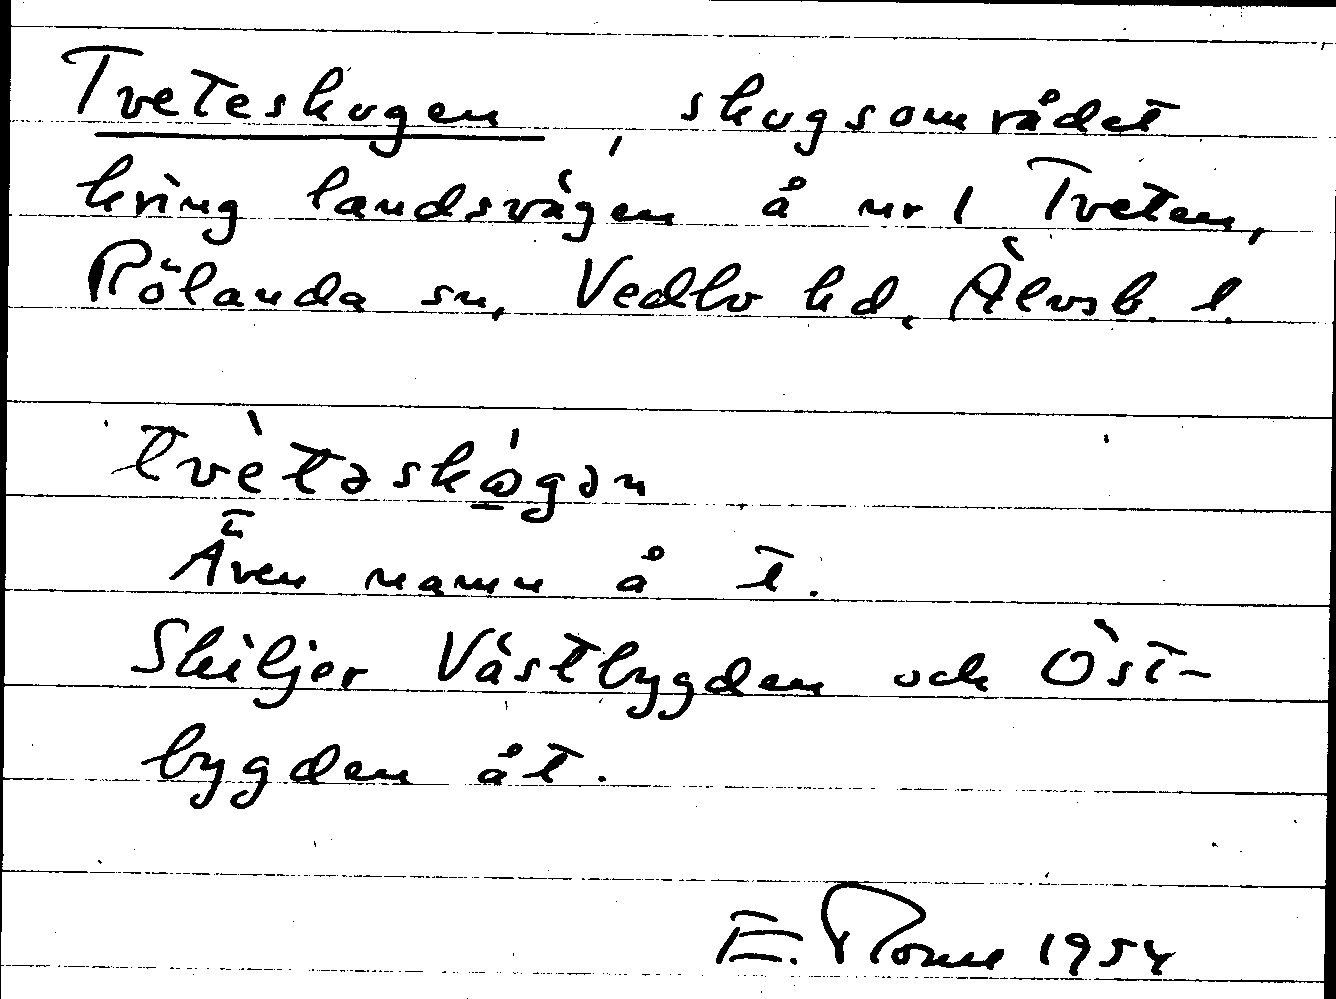 Tveteskogen, skogsområdet
kring landsvägen å nr 1 Tveten,
Rölanda sn, Vedbo hd, Älvsb. l.
tvètəskógən
Även namn å t.
Skiljer Västbygden och Öst-
bygden åt.
E. 1954